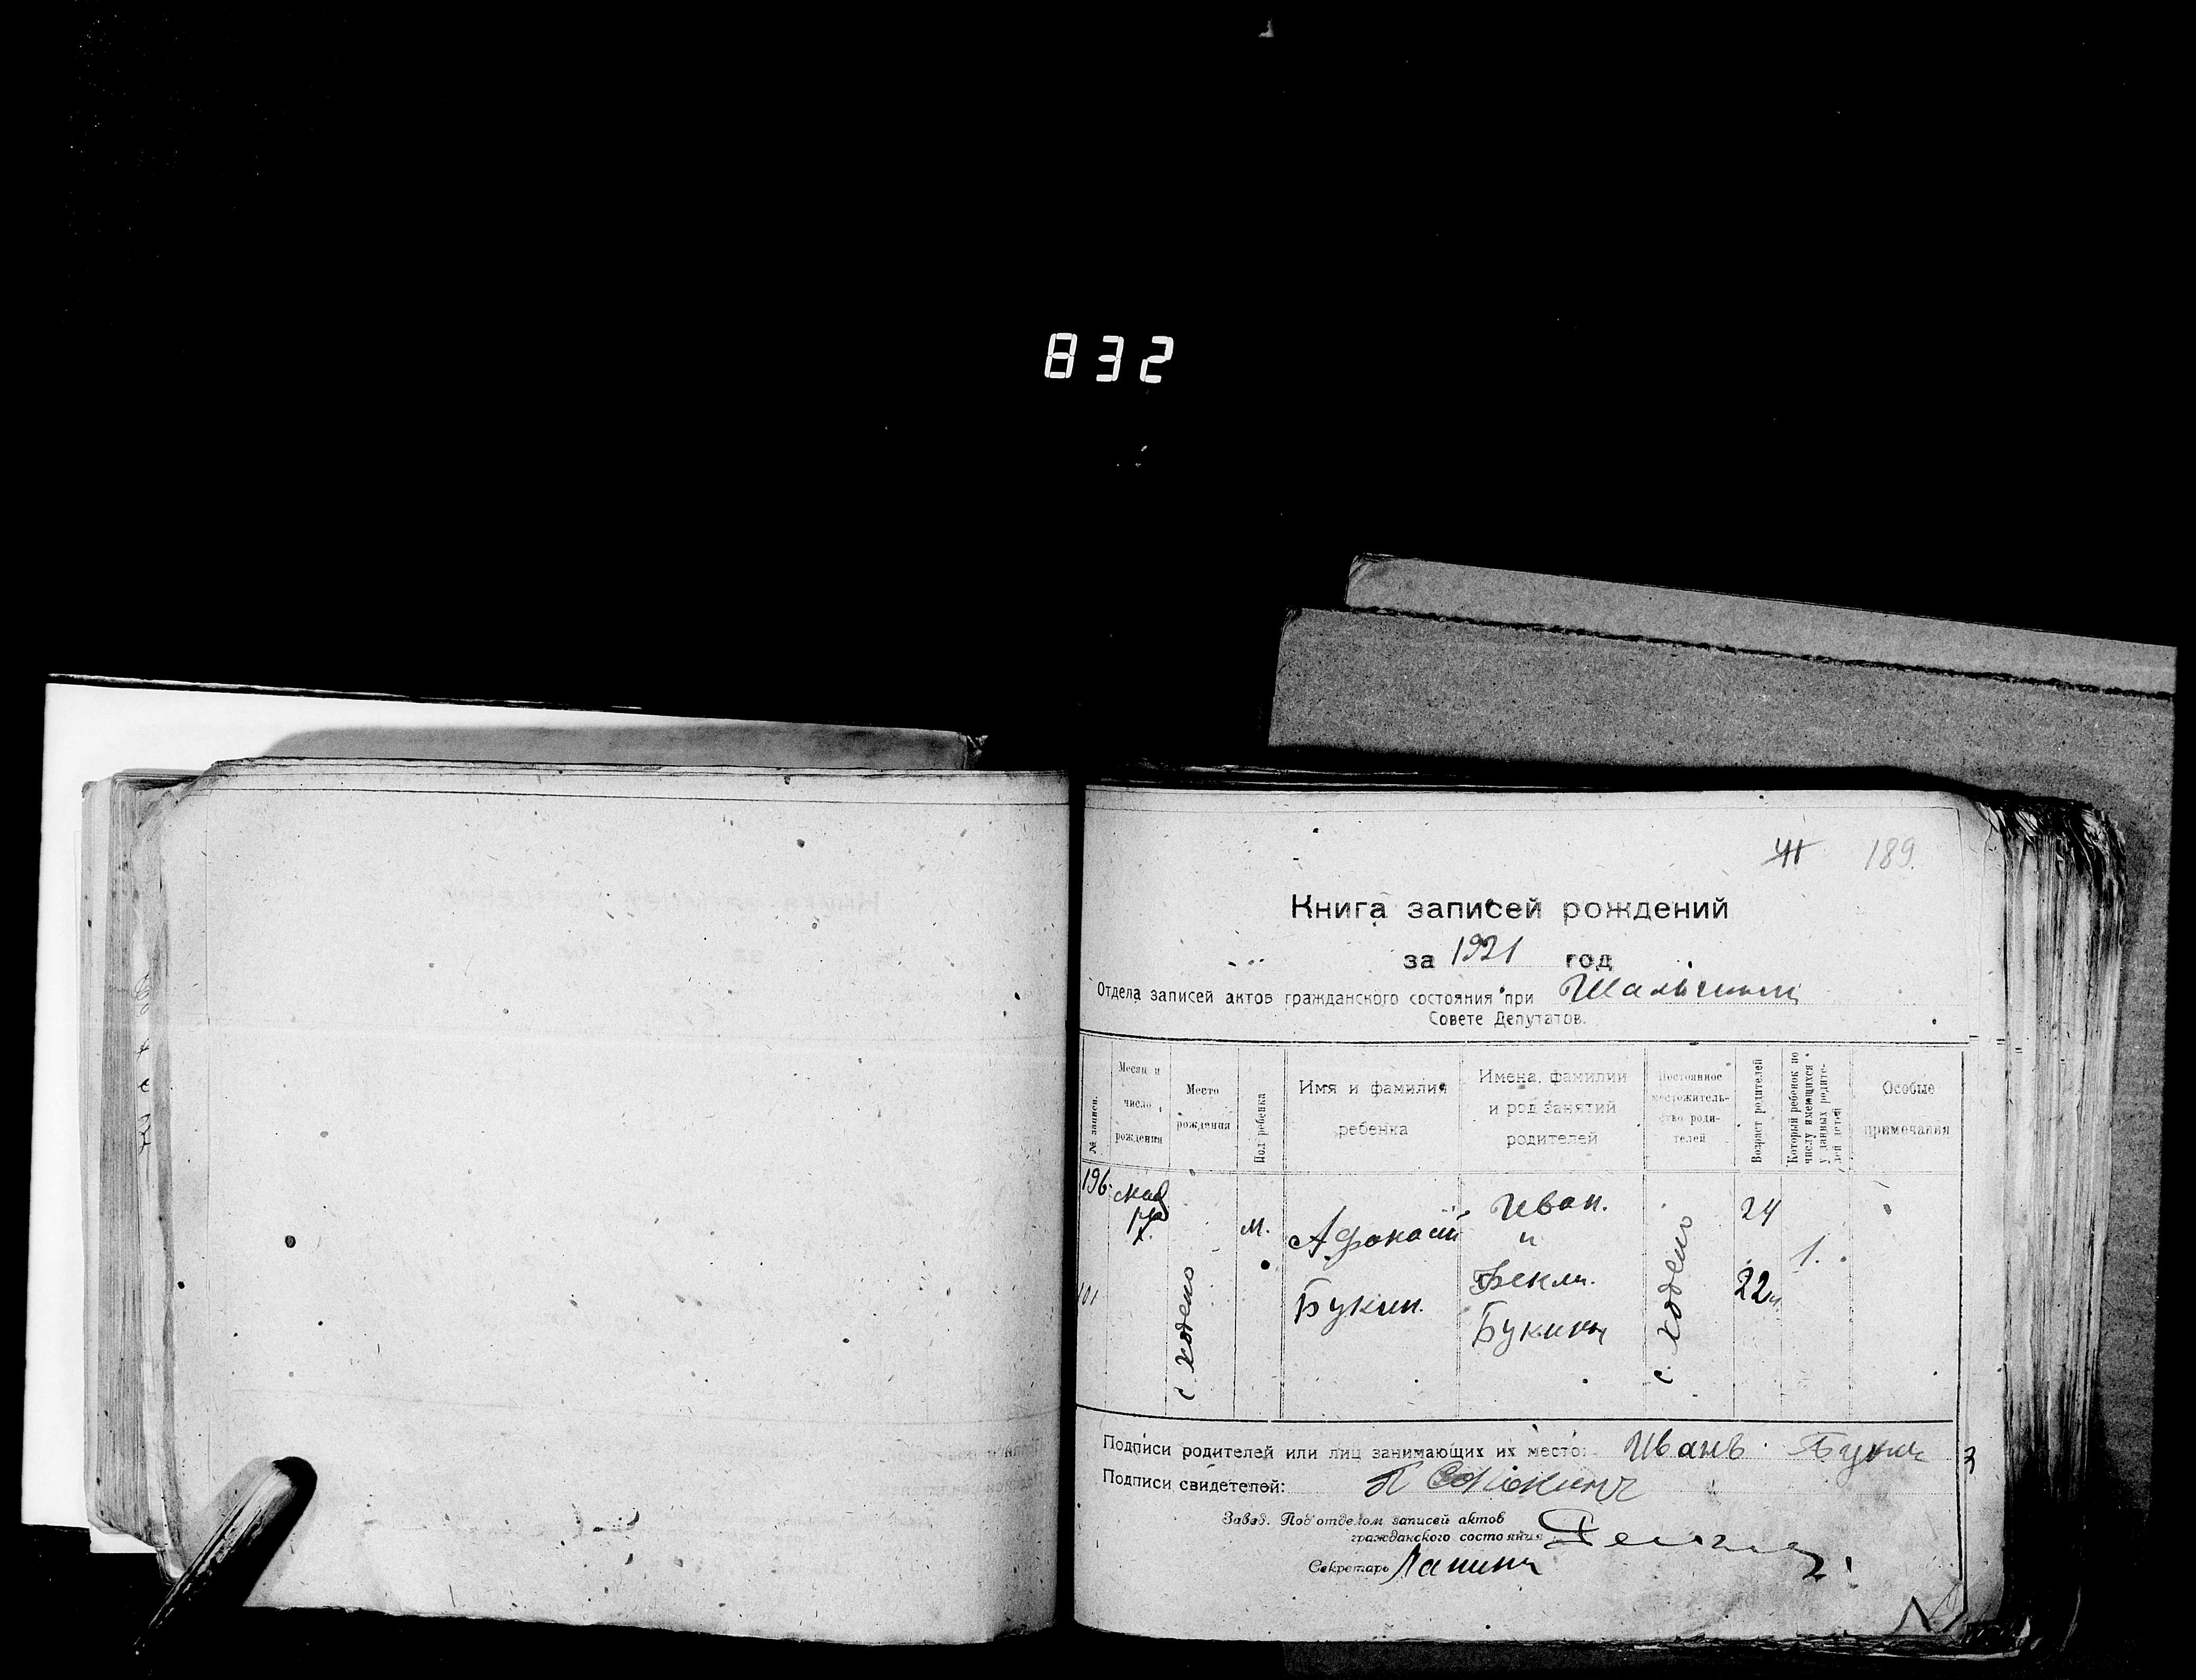 832
189.
Книга записей рождений
за 1921 год
Отдела записей актов гражданского состояния при
Совете Депутатов.
№ записи.
Месяц и число рождения
Место рождения
Пол ребенка
Имя и фамилия ребенка
Имена, фамилии и род занятий родителей
Постоянное местожительство родителей
Возраст родителей
Который ребенок по числу имеющихся у данных родителей детей
Особые примечания
196.
м.
Афонасий
Букин.
Иван.
и
Фекла.
Букины
24
22
1.
Подписи родителей или лиц занимающих их место: Иванъ Букин
Подписи свидетелей:
Завед. Под'отделом записей актов
гражданского состояния
Секретарь Лапинъ